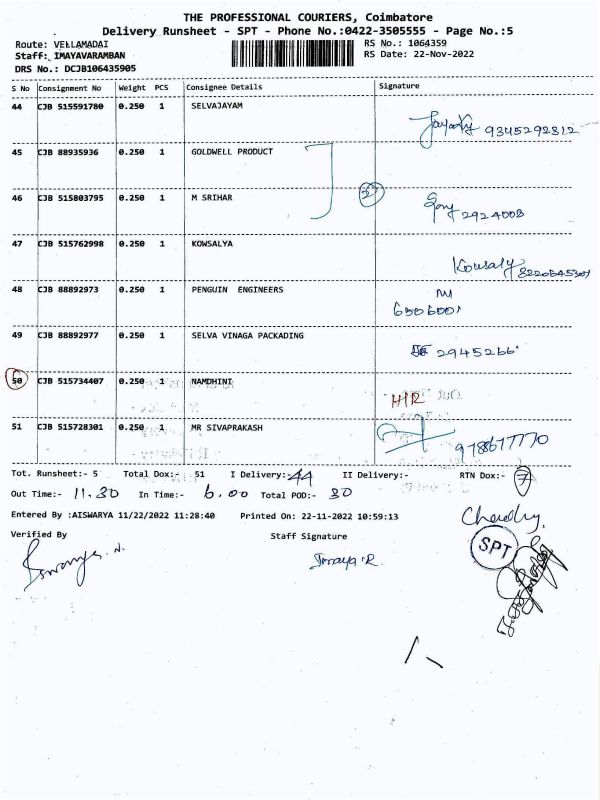 THE PROFESSIONAL COURIERS, Coimbatore
Delivery Runsheet - SPT - Phone No.:0422-3505555 - Page No.:5
Route: VELLAMADAI RS No.: 1064359
Staff: IMAYAVARAMBAN RS Date: 22-Nov-2022
DRS No.: DCJB106435905
S No Consignment No Weight PCS Consignee Details Signature
44 CJB 515591780 0.250 1 SELVAJAYAM 9345292812
45 CJB 88935936 0.250 1 GOLDWELL PRODUCT
46 CJB 515803795 0.250 1 M SRIHAR 2924008
47 CJB 515762998 0.250 1 KOWSALYA Kowsaly
48 CJB 88892973 0.250 1 PENGUIN ENGINEERS
49 CJB 88892977 0.250 1 SELVA VINAGA PACKADING 2945266
50 CJB 515734407 0.250 1 NAMDHINI H/R
51 CJB 515728301 0.250 1 MR SIVAPRAKASH
Tot. Runsheet:- 5 Total Dox:- 51 I Delivery:- 44 II Delivery:- RTN Dox:- 7
Out Time:- 11.30 In Time:- 6.00 Total POD:- 30
Entered By :AISWARYA 11/22/2022 11:28:40 Printed On: 22-11-2022 10:59:13
Verified By Staff Signature
SPT